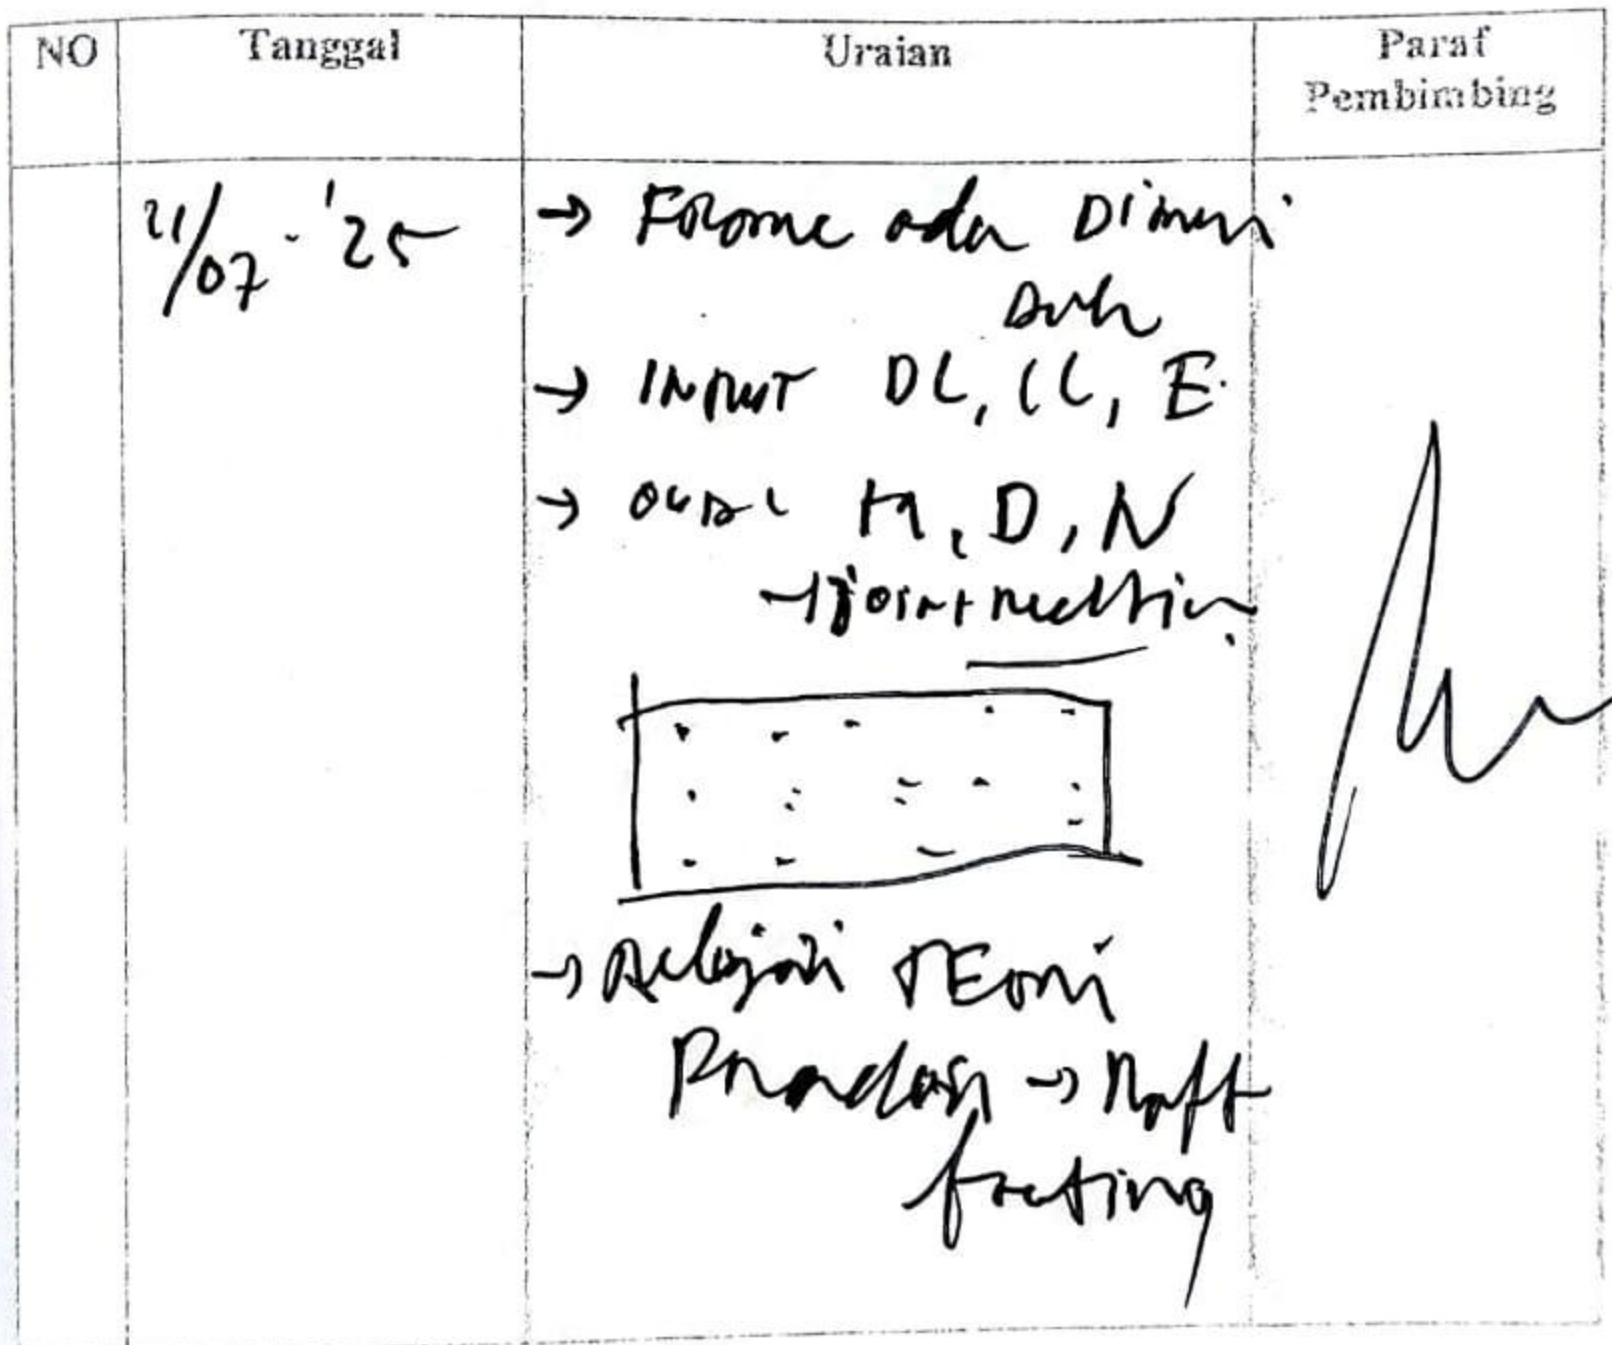 NO Tanggal Uraian Paraf
Pembimbing
21/07 - '25
→ Frame ada Dimensi
→ INPUT DL, LL, E.
→ M, D, N
→ Joint reaction
→ Pelajari TEori
Pondasi → Raft
footing